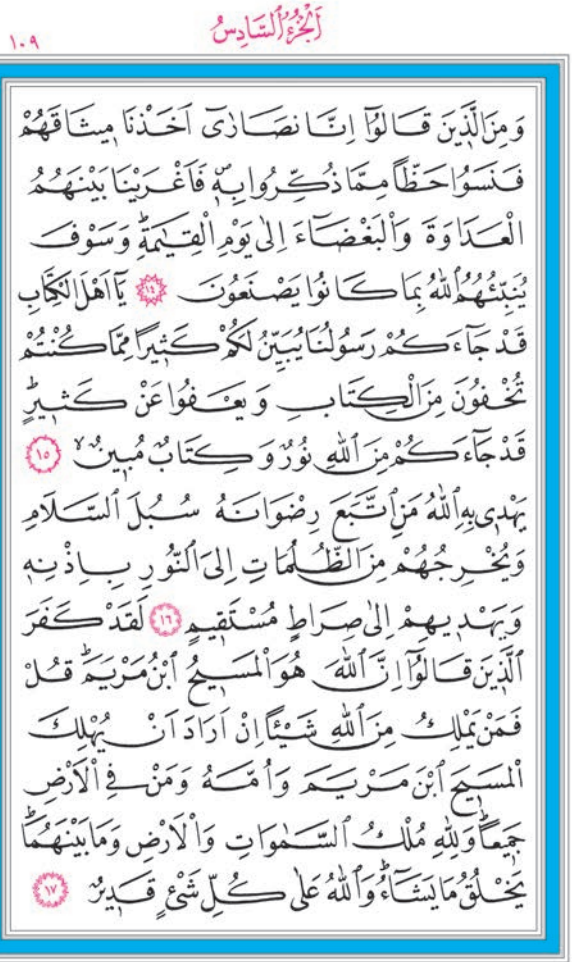 اَلْجُزْءُ السَّادِسُ
١٠٩
وَمِنَ الَّذ۪ينَ قَالُٓوا اِنَّا نَصَارٰٓى اَخَذْنَا م۪يثَاقَهُمْ
فَنَسُوا حَظًّا مِمَّا ذُكِّرُوا بِه۪ۖ فَاَغْرَيْنَا بَيْنَهُمُ
الْعَدَاوَةَ وَالْبَغْضَٓاءَ اِلٰى يَوْمِ الْقِيٰمَةِۜ وَسَوْفَ
يُنَبِّئُهُمُ اللّٰهُ بِمَا كَانُوا يَصْنَعُونَ ﴿١٤﴾ يَٓا اَهْلَ الْكِتَابِ
قَدْ جَٓاءَكُمْ رَسُولُنَا يُبَيِّنُ لَكُمْ كَث۪يرًا مِمَّا كُنْتُمْ
تُخْفُونَ مِنَ الْكِتَابِ وَيَعْفُوا عَنْ كَث۪يرٍۜ
قَدْ جَٓاءَكُمْ مِنَ اللّٰهِ نُورٌ وَكِتَابٌ مُب۪ينٌۙ ﴿١٥﴾
يَهْد۪ي بِهِ اللّٰهُ مَنِ اتَّبَعَ رِضْوَانَهُ سُبُلَ السَّلَامِ
وَيُخْرِجُهُمْ مِنَ الظُّلُمَاتِ اِلَى النُّورِ بِاِذْنِه۪
وَيَهْد۪يهِمْ اِلٰى صِرَاطٍ مُسْتَق۪يمٍ ﴿١٦﴾ لَقَدْ كَفَرَ
الَّذ۪ينَ قَالُٓوا اِنَّ اللّٰهَ هُوَ الْمَس۪يحُ ابْنُ مَرْيَمَۜ قُلْ
فَمَنْ يَمْلِكُ مِنَ اللّٰهِ شَيْـًٔا اِنْ اَرَادَ اَنْ يُهْلِكَ
الْمَس۪يحَ ابْنَ مَرْيَمَ وَاُمَّهُ وَمَنْ فِي الْاَرْضِ
جَم۪يعًاۜ وَلِلّٰهِ مُلْكُ السَّمٰوَاتِ وَالْاَرْضِ وَمَا بَيْنَهُمَاۜ
يَخْلُقُ مَا يَشَٓاءُۜ وَاللّٰهُ عَلٰى كُلِّ شَيْءٍ قَد۪يرٌ ﴿١٧﴾